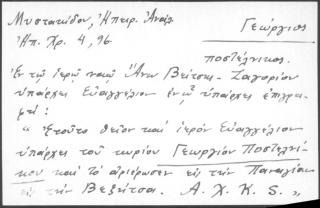 Μυστακίδου, Ἠπειρ. Ἀνάλ.
Ἠπ. Χρ. 4, 96
Γεώργιος
ποστέλνικος.
Ἐν τῷ ἱερῷ ναῷ Ἄνω Βεΐτσας - Ζαγορίου
ὑπάρχει Εὐαγγέλιον ἐν ᾧ ὑπάρχει ἐπιγρα-
φή:
" Ἐτοῦτο θεῖον καί ἱερόν Εὐαγγέλιον
ὑπάρχει τοῦ κυρίου Γεωργίου Ποστελνί-
κου καί τό ἀφιέρωσεν εἰς τήν Παναγίαν
εἰς τήν Βεζίτσα. Α. Χ. Κ. S. "